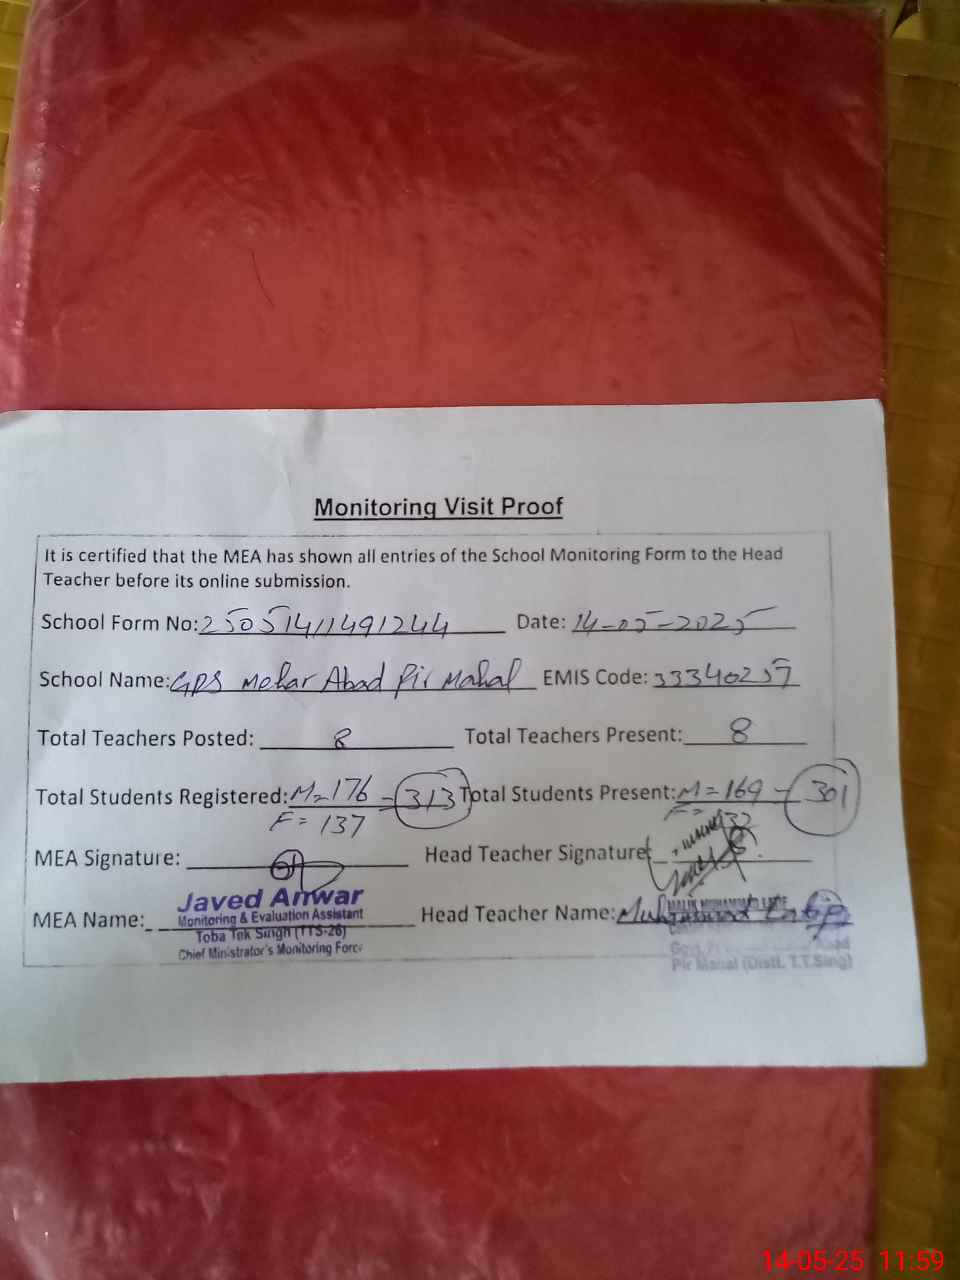 Monitoring Visit Proof
It is certified that the MEA has shown all entries of the School Monitoring Form to the Head
Teacher before its online submission.
School Form No: 25051411491244 Date: 14-05-2025
School Name: GPS Mehar Abad Pir Mahal EMIS Code: 33340257
Total Teachers Posted: 8 Total Teachers Present: 8
Total Students Registered: M=176 - 313 Total Students Present: M=169 - 301
F=137 F= 132
MEA Signature: Head Teacher Signature
MEA Name: Head Teacher Name: Muhammad
Javed Anwar
Monitoring & Evaluation Assistant
Toba Tek Singh (TTS-26)
Chief Ministrator's Monitoring Force
MALIK MUHAMMAD
Pir Mahal (Distt. T.T.Sing)
14-05-25 11:59